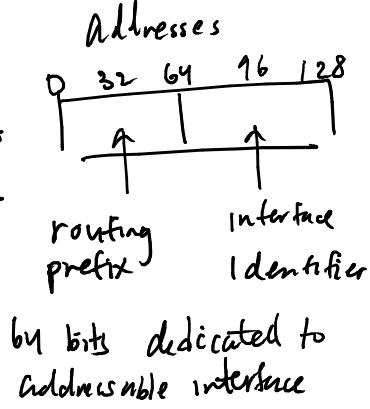 Addresses
0 32 64 96 128
routing interface
prefix Identifier
64 bits dedicated to
addressable interface